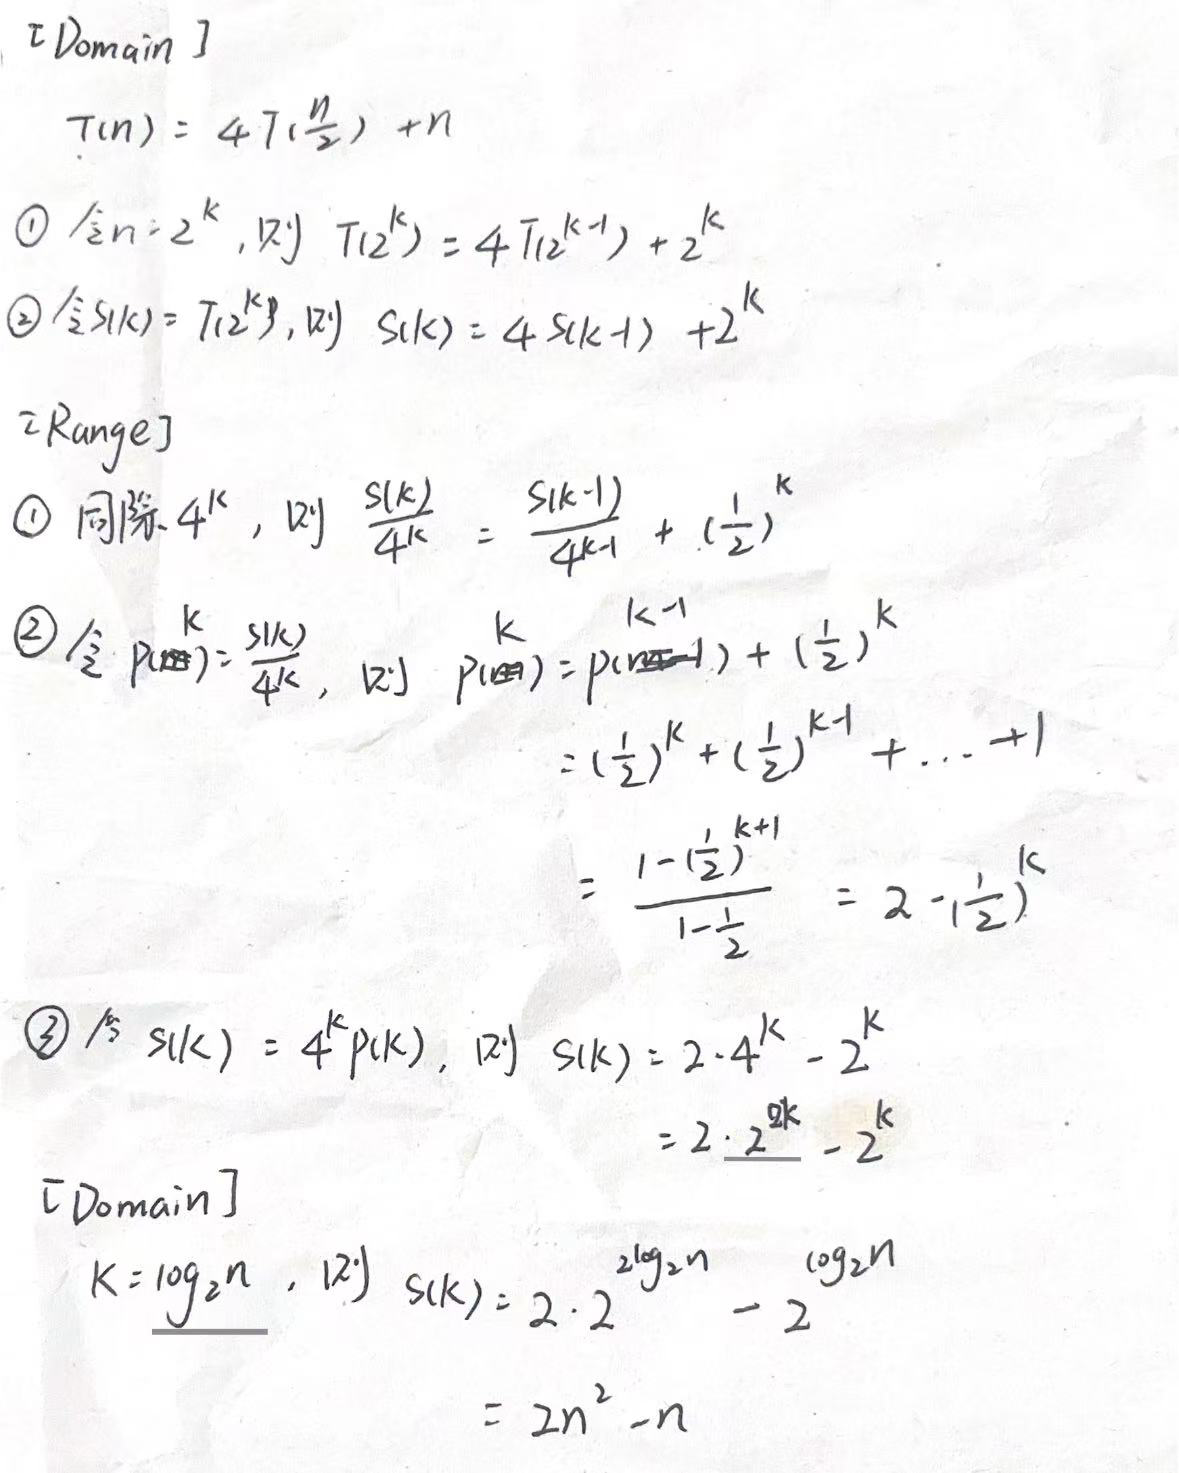 [Domain]
T(n) = 4T(n/2) + n
① 令n=2^k, 则 T(2^k) = 4T(2^(k-1)) + 2^k
② 令S(k) = T(2^k), 则 S(k) = 4S(k-1) + 2^k
[Range]
① 同除4^k, 则 S(k)/4^k = S(k-1)/4^(k-1) + (1/2)^k
② 令 P(k) = S(k)/4^k, 则 P(k) = P(k-1) + (1/2)^k
= (1/2)^k + (1/2)^(k-1) + ... + 1
= (1-(1/2)^(k+1))/(1-1/2) = 2-(1/2)^k
③ 令 S(k) = 4^k P(k), 则 S(k) = 2·4^k - 2^k
= 2·2^(2k) - 2^k
[Domain]
k = log₂n, 则 S(k) = 2·2^(2log₂n) - 2^(log₂n)
= 2n² - n